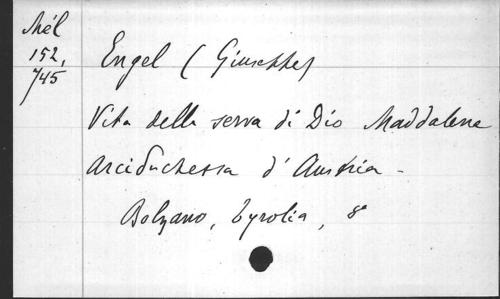 Mél
152,
745
Engel (Giuseppe)
Vita della serva di Dio Maddalena
arciduchessa d'Austria -
Bolzano, Tyrolia, 8°